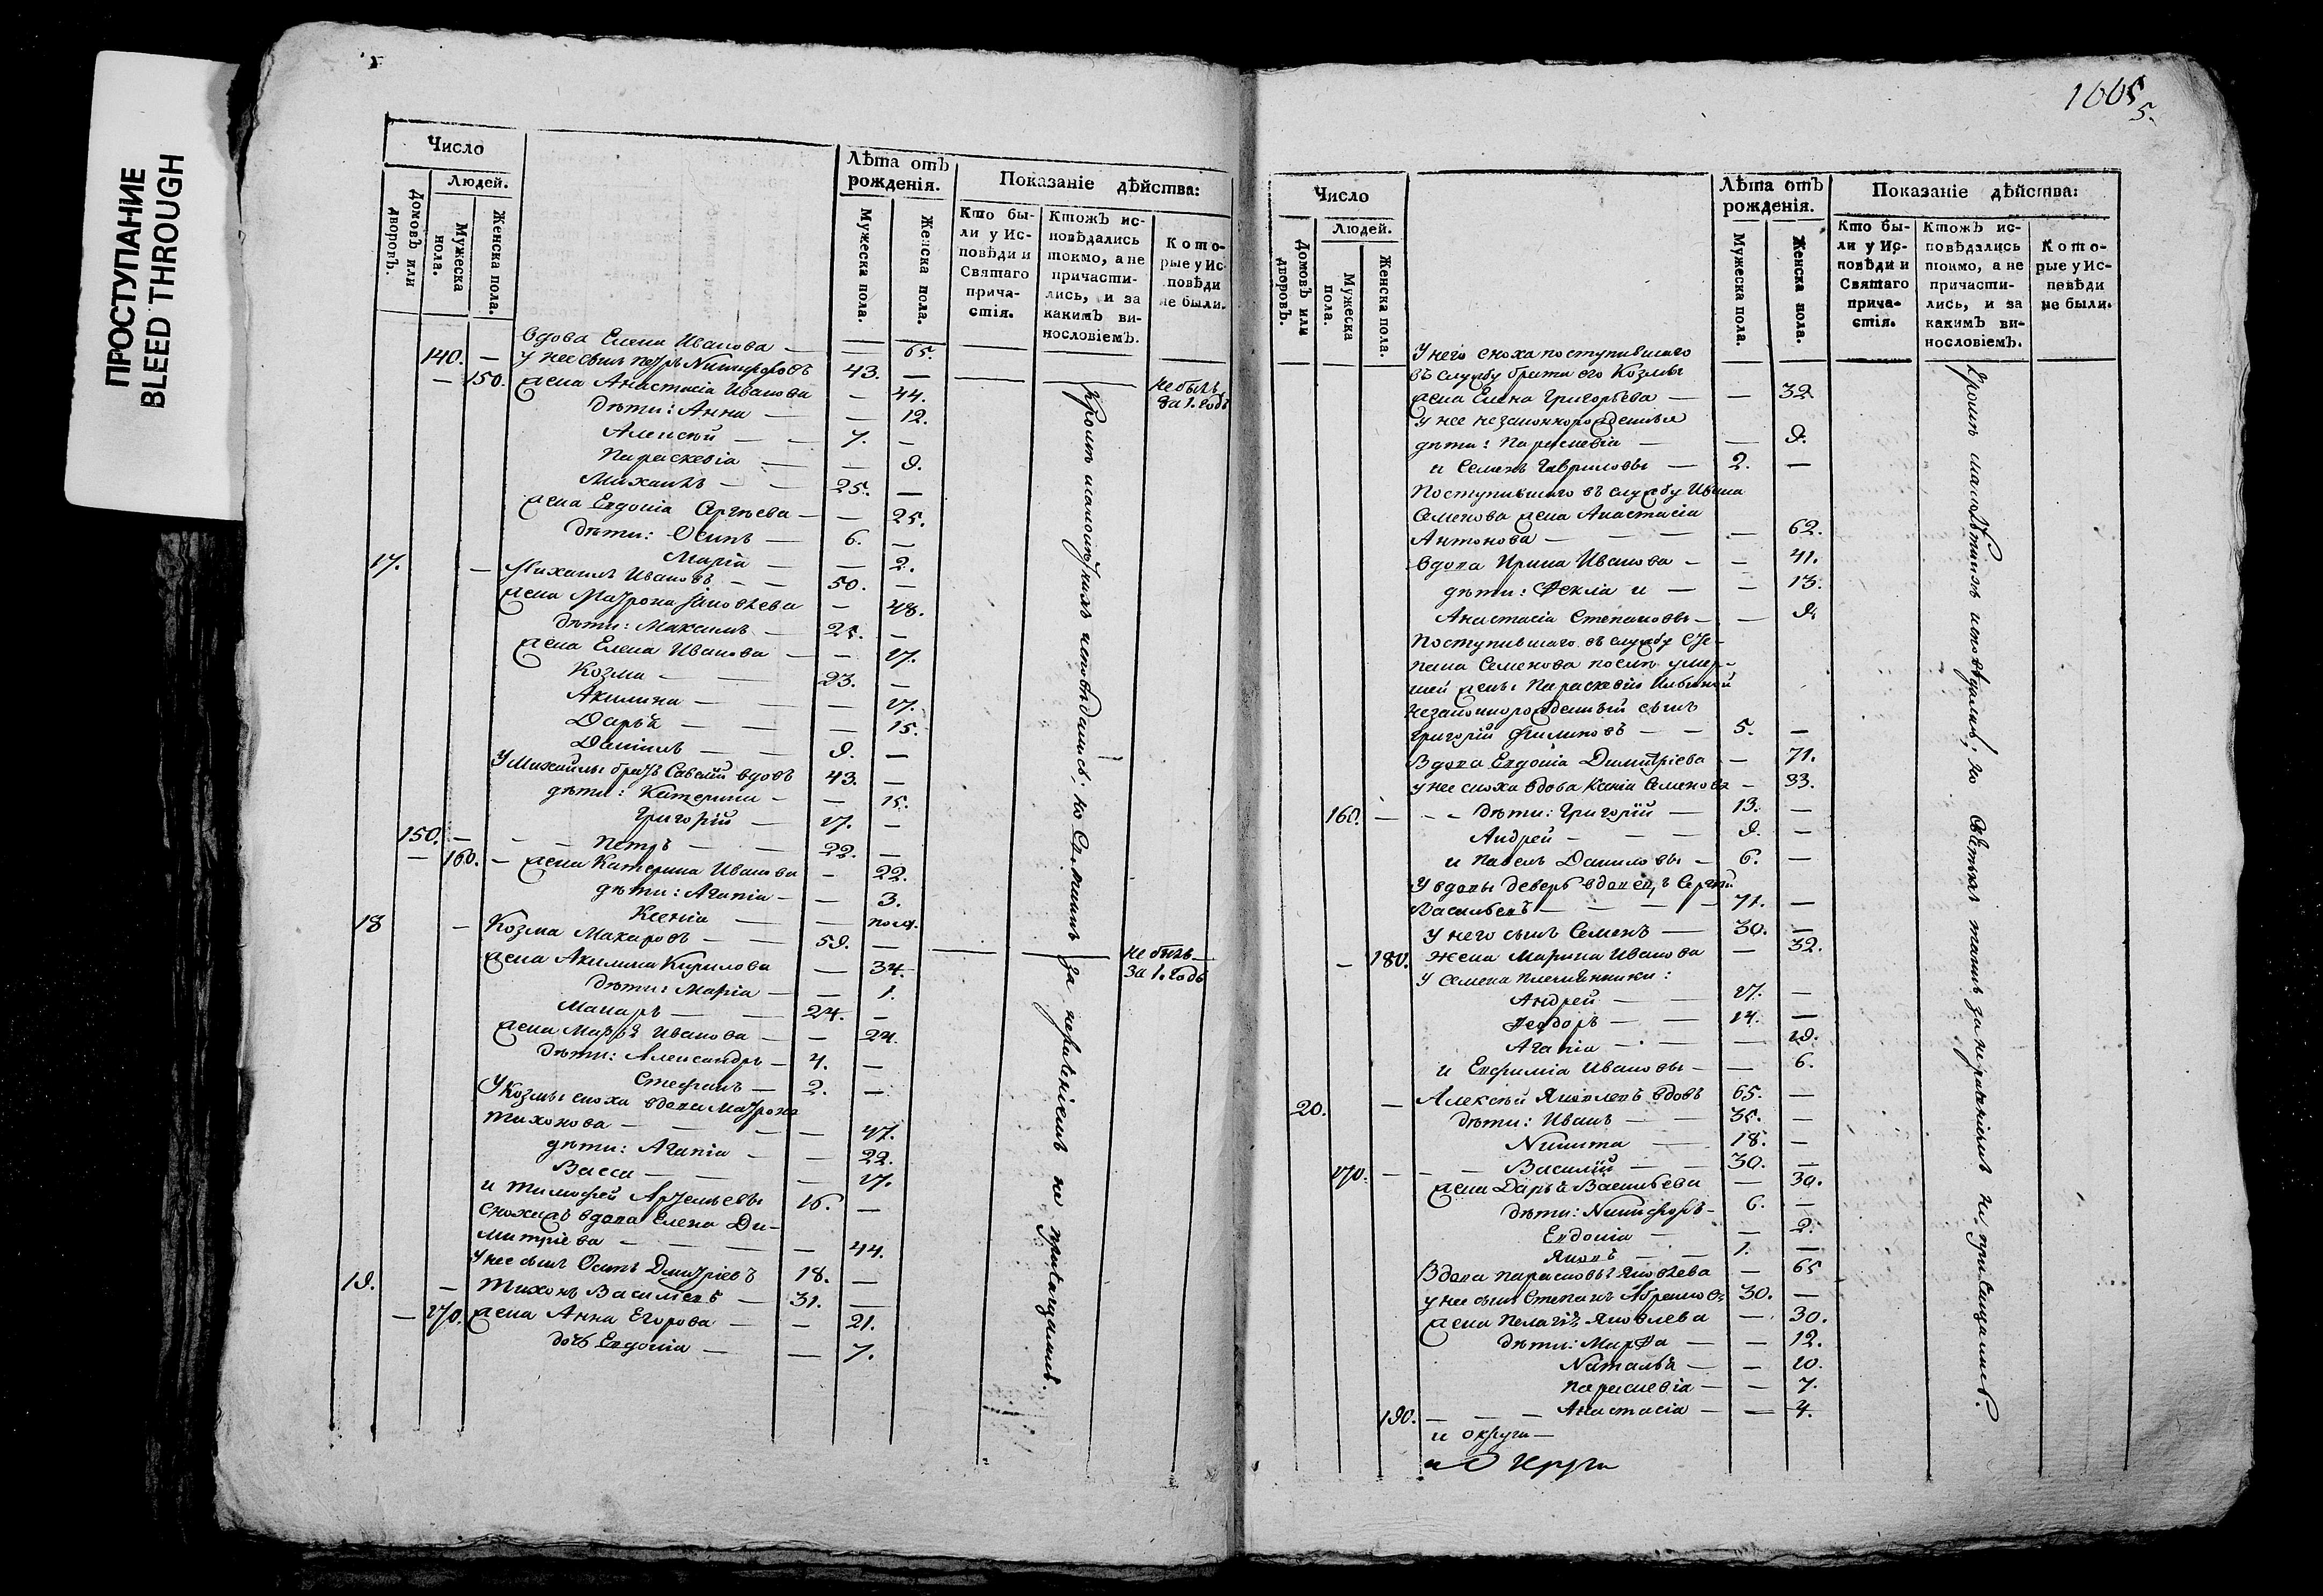 ПРОСТУПАНИЕ
BLEED THROUGH
Число
Людей.
Домовъ или дворовъ.
Мужеска пола.
Женска пола.
Лѣта отъ рожденія.
Мужеска пола.
Женска пола.
Показаніе дѣйства:
Кто бы-
ли у Ис-
повѣди и
Святаго
прича-
стія.
Ктожъ ис-
повѣдались
токмо, а не
причасти-
лись, и за
какимъ ви-
нословіемъ.
Кото-
рые у Ис-
повѣди
не были.
вдова Елена Иванова — — 65.
140. — у нее сынъ Петръ Никифоровъ 43. —
— 150. жена Анастасія Иванова — 44.
не былъ
за 1. годъ
дѣти: Анна — — 12.
Алексѣй — — 7. —
Параскевія — — 9.
Михаилъ — — 25. —
жена Евдокія Сергѣева — — 25.
дѣти: Осипъ — 6. —
Марія — — 2.
17. — Михаилъ Ивановъ — — 50. —
жена Матрона Яковлева — 48.
дѣти: Максимъ — 25. —
жена Елена Иванова — — 27.
Козма — — 23. —
Акилина — — — 17.
Дарья — — — 15.
Даніилъ — — 9. —
У Михайлы братъ Савелій вдовъ 43. —
дѣти: Катерина — — 15.
Григорій — 17. —
150. — — — Петръ — — 22. —
— 160. — жена Катерина Иванова — 22.
дѣти: Агапія — — 3.
Ксенія — —
18 — Козма Макаровъ — — 59. —
не былъ
за 1. годъ
жена Акилина Кирилова — 34.
дѣти: Марія — — 1.
Макаръ — — 24. —
жена Марфа Иванова — — 24.
дѣти: Александръ — 4. —
Стефанъ — 2. —
У Козмы сноха вдова Матрона
Тихонова — — — — 47.
дѣти: Агапія — — 22.
Васса — — — 17.
и Тимофей Артемьевы 16. —
вдова Елена Ди-
митріева — — — — 44.
у нее сынъ Осипъ Дмитріевъ 18. —
19. — Тихонъ Васильевъ — 31. —
— 170. жена Анна Егорова — — 21.
дочь Евдокія — — 7.
Кромѣ исповѣдались, но Св. таинъ за нераденіемъ не пріобщались.
1005
5.
Число
Людей.
Домовъ или дворовъ.
Мужеска пола.
Женска пола.
Лѣта отъ рожденія.
Мужеска пола.
Женска пола.
Показаніе дѣйства:
Кто бы-
ли у Ис-
повѣди и
Святаго
прича-
стія.
Ктожъ ис-
повѣдались
токмо, а не
причасти-
лись, и за
какимъ ви-
нословіемъ.
Кото-
рые у Ис-
повѣди
не были.
У него сноха поступившаго
въ службу брата его Козмы
жена Елена Григорьева — — 32
у нее незаконнорожденные
дѣти: Параскевія — — 9.
и Семенъ Гавриловы — 2. —
Поступившаго въ службу Ивана
Семенова жена Анастасія
Антонова — — — — 62.
вдова Ирина Иванова — — 41.
дѣти: Фекла и — — 13.
Анастасія Степановы — — 9.
Поступившаго въ службу Сте-
пана Семенова послѣ умер-
шей жены Параскевіи Ильиной
незаконнорожденный сынъ
Григорій Филиповъ — — 5. —
Вдова Евдокія Димитріева — — 71.
у нее сноха вдова Ксенія Семенова — 33.
160. — — — дѣти: Григорій — 13. —
Андрей — — — 9. —
и Павелъ Даниловы — 6. —
У вдовы деверь вдовецъ Сергѣй
Васильевъ — — — — 71. —
у него сынъ Семенъ — 30. —
— 180. жена Марина Иванова — 32.
У Семена племянники:
Андрей — — 17. —
Феодоръ — — 14. —
Агапія — — — 19.
и Евфимія Ивановы — — 6.
20. — Алексѣй Яковлевъ вдовъ 65. —
дѣти: Иванъ — — 35. —
Никита — — 18. —
170. — — — Василій — — 30. —
жена Дарья Васильева — 30.
дѣти: Никифоръ — 6. —
Евдокія — — 2.
Яковъ — — 1. —
Вдова Парасковья Яковлева — 65
у нее сынъ Степанъ Абрамовъ 30. —
жена Пелагія Яковлева — 30.
дѣти: Марфа — — 12.
Наталья — — 10.
Параскевія — — 7.
190. — — — Анастасія — — 4.
и округи —
и Округи
Кромѣ малолѣтнихъ исповѣдались, но Святыхъ таинъ за нераденіемъ не пріобщались.